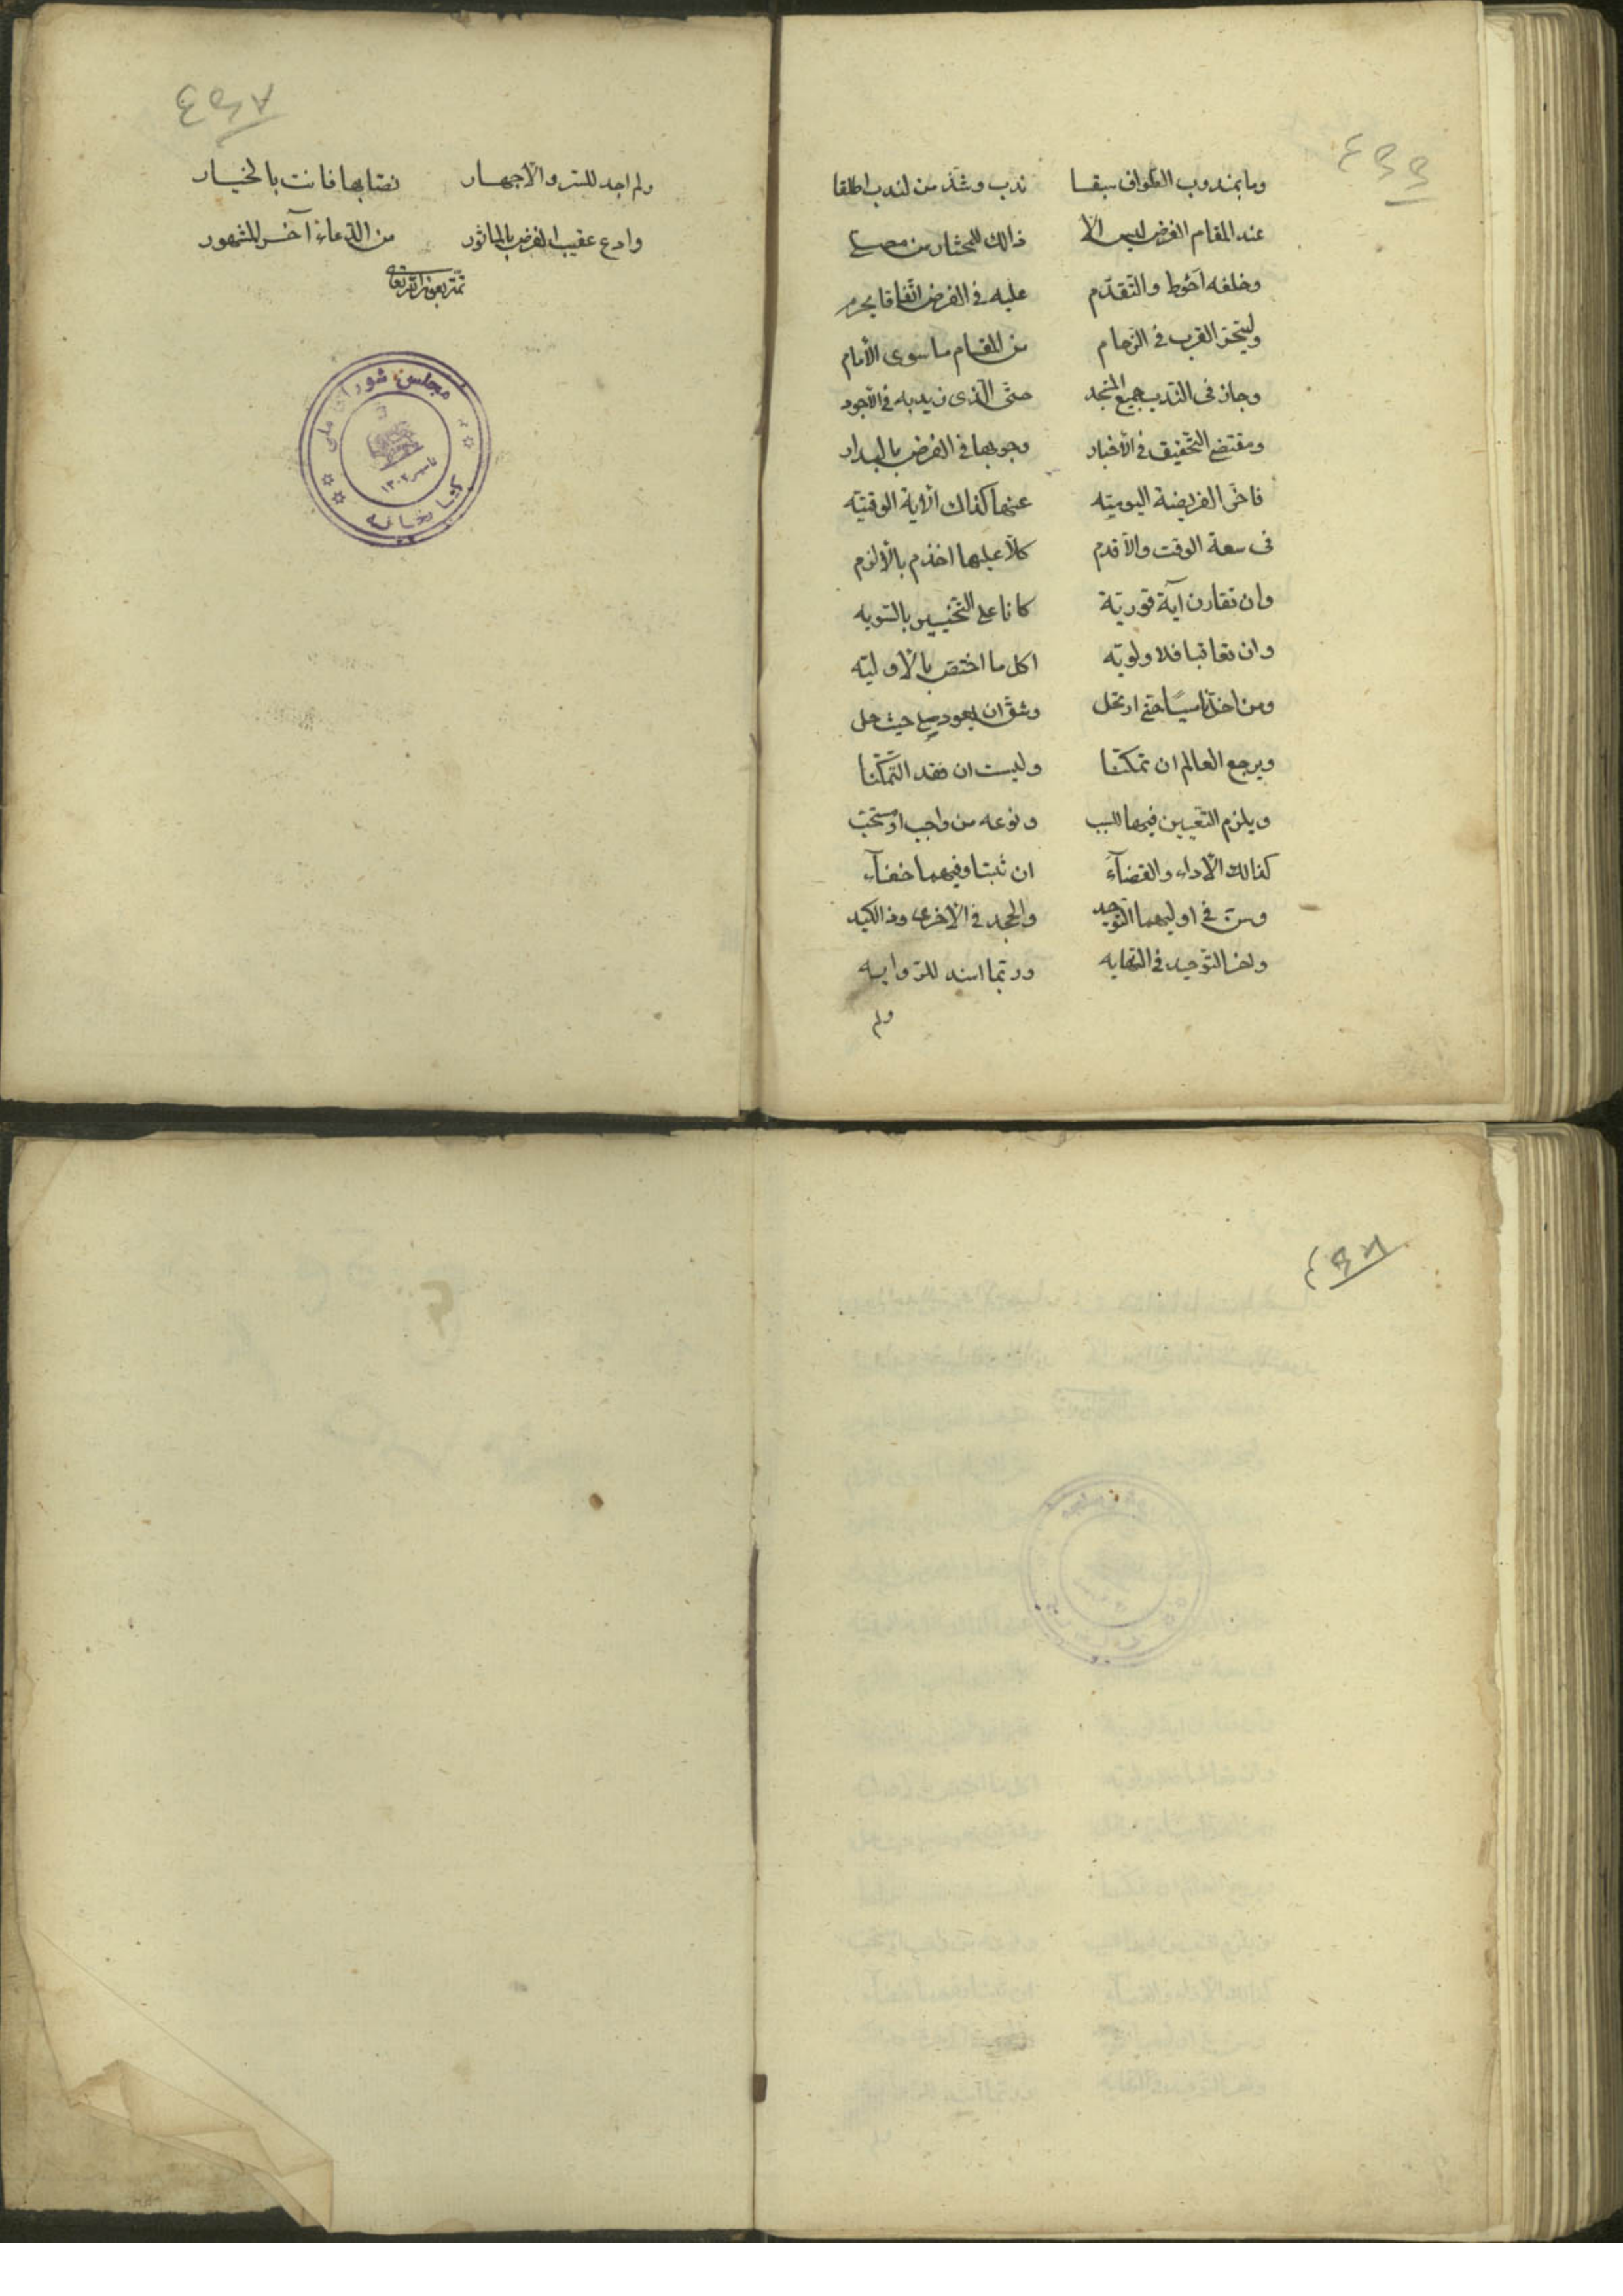 وما بمندوب الطواف سبقا ندب وشذ من لندب اطلقا
عند المقام الفرض ليس الا فذالك المختار من مصلى
وخلفه احوط والتقدم عليه في الفرض اتفاقا يحرم
وليتحر القرب في الزحام من المقام ما سوى الأمام
وجاز في الندب جميع المسجد حتى الذى زيد به في الأجود
ومقتضى التحقيق في الأخبار وجوبها في الفرض بالبدار
فاخر الفريضة اليومية عنها كذاك الآية الوقتية
فى سعة الوقت والأقدم كلا عليها اخذم بالألزم
وان تقارن آية فورية كانا على التخيير بالتسويه
وان تعاقبا فلا ولويه لكل ما اختص بالأوليه
ومن اخل ناسيًا حتى ارتحل وشق ان يعود صلى حيث حل
ويرجع العالم ان تمكنا وليست ان فقد التمكنا
ويلزم التعيين فيها للسبب ونوعه من واجب او مستحب
كذالك الأداء والقضآء ان ثبتا وفيهما خفآء
وسن في اوليهما التوحيد والجحد في الاخرى وفد اكيد
ولفز التوحيد في النهايه وربما اسند للروايه
ولم
٤٩٧
ولم اجد للستر والأجهار نصا بها فانت بالخيار
وادع عقيب الفرض بالماثور من الدعاء آخر المشهور
تمت بعون الله تعالى
مجلس شوراى ملى
كتابخانه
تاسيس ١٣٠٢